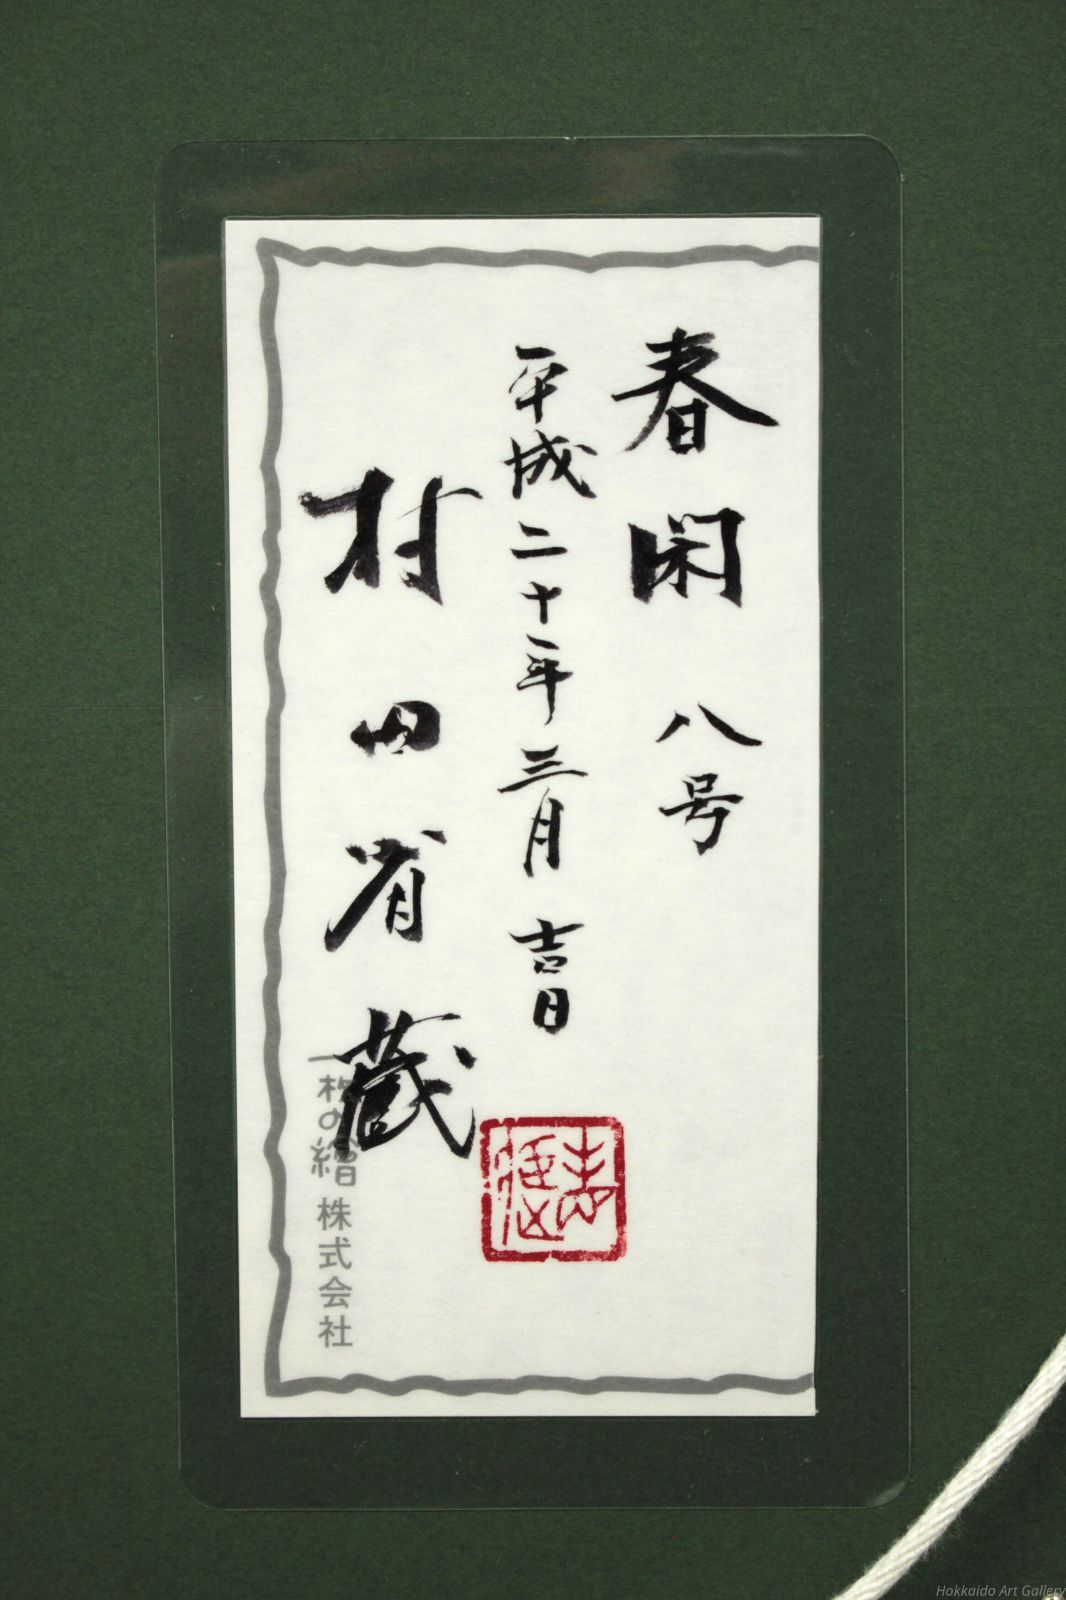 春閑 八号
平成二十年三月 吉日
村田省蔵
一枚の繪株式会社
Hokkaido Art Gallery